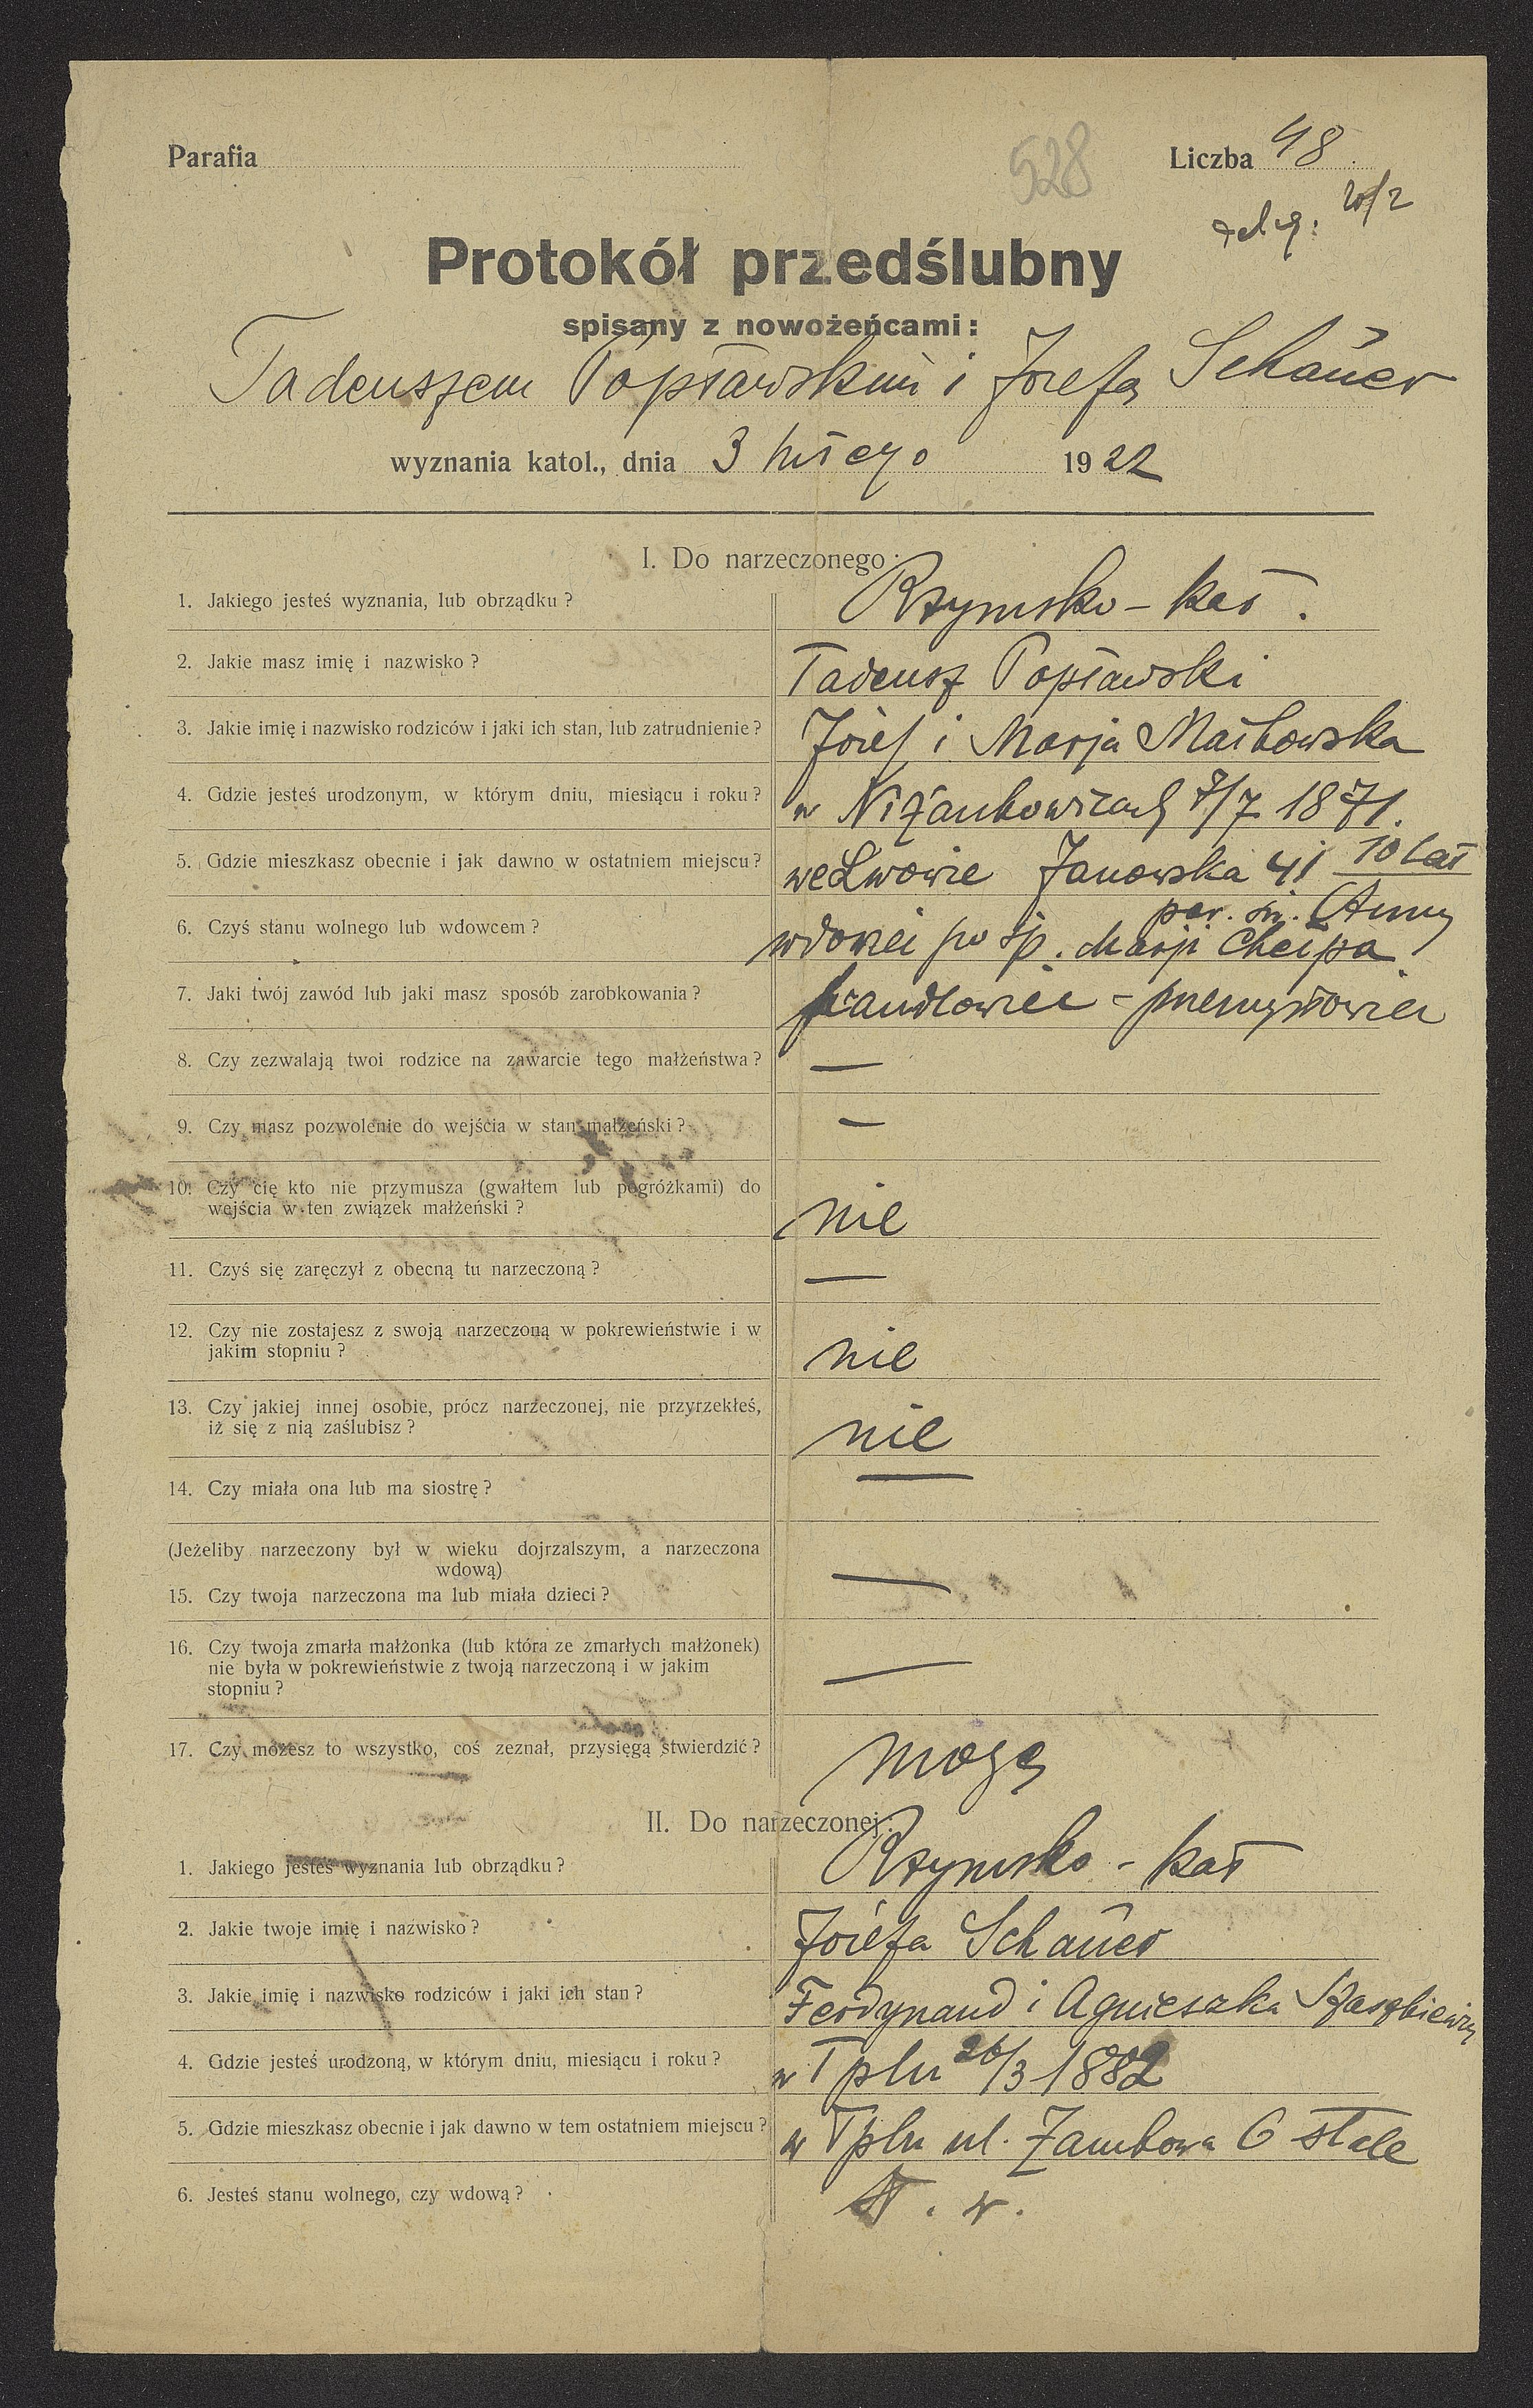 Parafia
528
Liczba 48
deleg: 20/2
Protokół przedślubny
spisany z nowożeńcami:
Tadeuszem Popławskim i Józefą Schauer
wyznania katol., dnia 3 lutego 1922
I. Do narzeczonego:
1. Jakiego jesteś wyznania, lub obrządku? Rzymsko-kat.
2. Jakie masz imię i nazwisko? Tadeusz Popławski
3. Jakie imię i nazwisko rodziców i jaki ich stan, lub zatrudnienie? Józef i Marja
4. Gdzie jesteś urodzonym, w którym dniu, miesiącu i roku? w Niżankowicach 7/7 1871.
5. Gdzie mieszkasz obecnie i jak dawno w ostatniem miejscu? we Lwowie Janowska 41 10 lat
par. św. Anny
6. Czyś stanu wolnego lub wdowcem? wdowiec po śp. Marji
7. Jaki twój zawód lub jaki masz sposób zarobkowania? handlowiec - przemysłowiec
8. Czy zezwalają twoi rodzice na zawarcie tego małżeństwa? —
9. Czy masz pozwolenie do wejścia w stan małżeński? —
10. Czy cię kto nie przymusza (gwałtem lub pogróżkami) do
wejścia w ten związek małżeński? nie
11. Czyś się zaręczył z obecną tu narzeczoną? —
12. Czy nie zostajesz z swoją narzeczoną w pokrewieństwie i w
jakim stopniu? nie
13. Czy jakiej innej osobie, prócz narzeczonej, nie przyrzekłeś,
iż się z nią zaślubisz? nie
14. Czy miała ona lub ma siostrę? —
(Jeżeliby narzeczony był w wieku dojrzalszym, a narzeczona
wdową)
15. Czy twoja narzeczona ma lub miała dzieci? —
16. Czy twoja zmarła małżonka (lub która ze zmarłych małżonek)
nie była w pokrewieństwie z twoją narzeczoną i w jakim
stopniu? —
17. Czy możesz to wszystko, coś zeznał, przysięgą stwierdzić? mogę
II. Do narzeczonej:
1. Jakiego jesteś wyznania lub obrządku? Rzymsko-kat
2. Jakie twoje imię i nazwisko? Józefa Schauer
3. Jakie imię i nazwisko rodziców i jaki ich stan? Ferdynand i Agnieszka
4. Gdzie jesteś urodzoną, w którym dniu, miesiącu i roku? w Tplu 26/3 1882
5. Gdzie mieszkasz obecnie i jak dawno w tem ostatniem miejscu? w Tplu ul. Zamkowa 6 stale
6. Jesteś stanu wolnego, czy wdową? st. w.